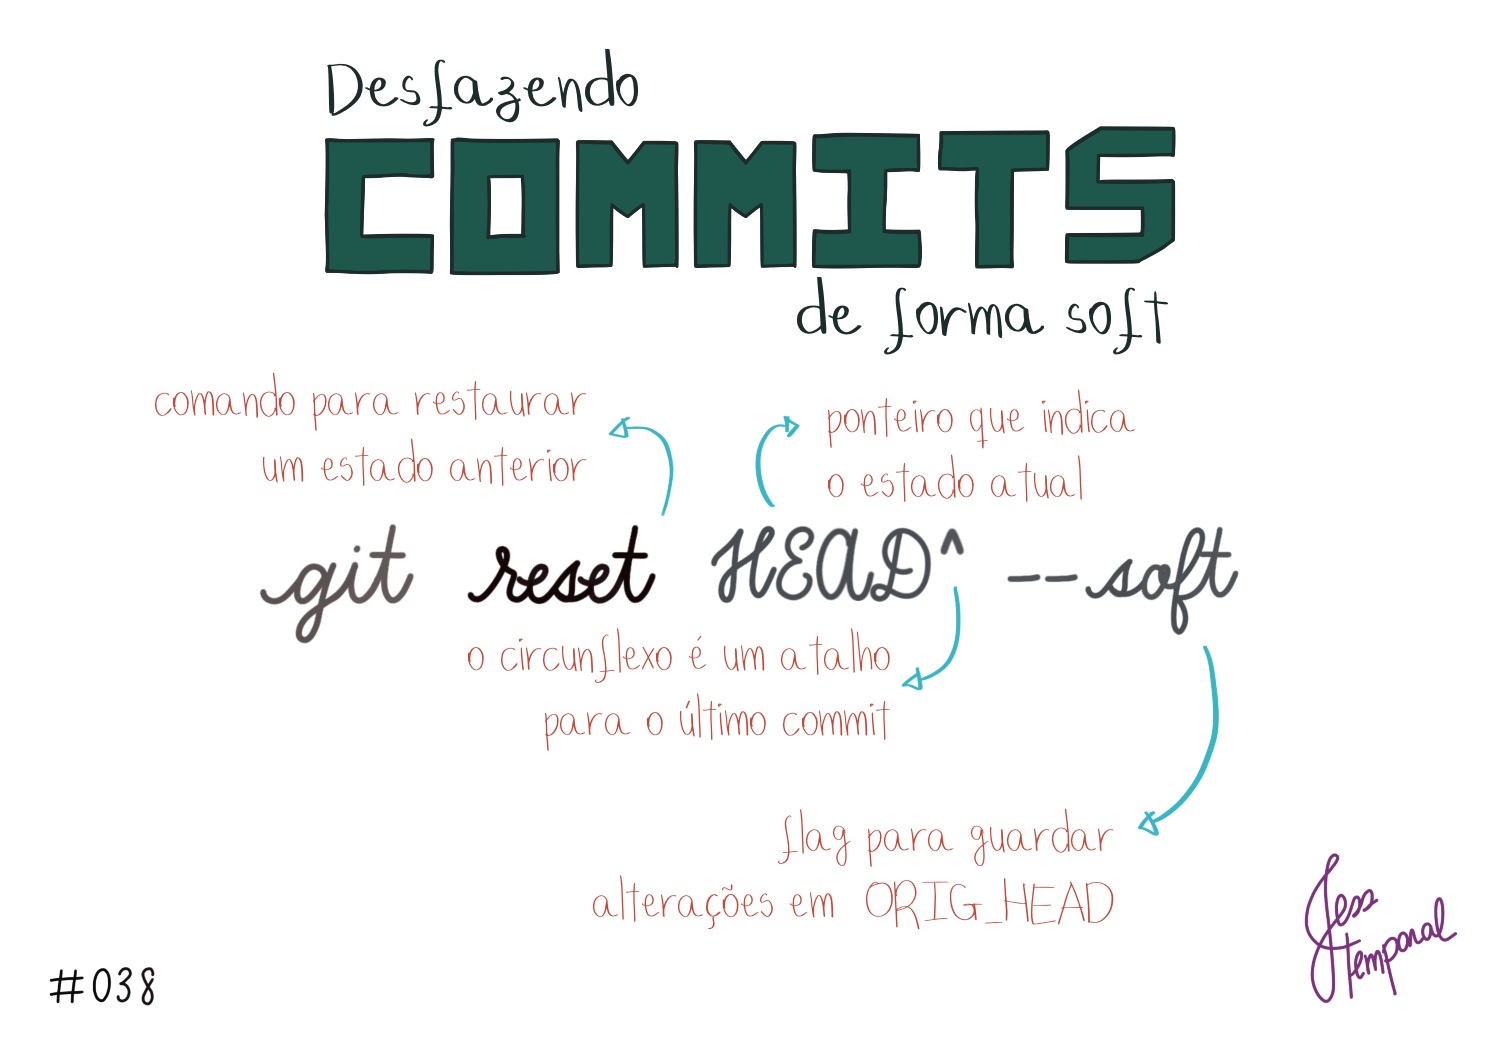 Desfazendo
COMMITS
de forma soft
comando para restaurar
um estado anterior
ponteiro que indica
o estado atual
git reset HEAD^ --soft
o circunflexo é um atalho
para o último commit
flag para guardar
alterações em ORIG_HEAD
#038
Jess
temporal